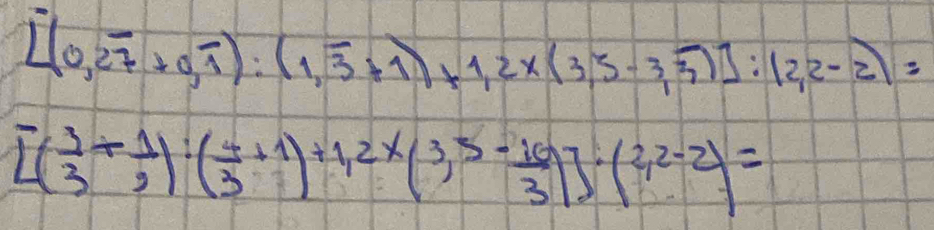 [(0,2\overline{7} + 0,\overline{1}) : (1,\overline{3} + 1) + 1,2 × (3,5 - 3,\overline{3})] : (2,2 - 2) =
[(\frac{3}{3} + \frac{1}{9}) : (\frac{4}{3} + 1) + 1,2 × (3,5 - \frac{10}{3})] : (2,2 - 2) =